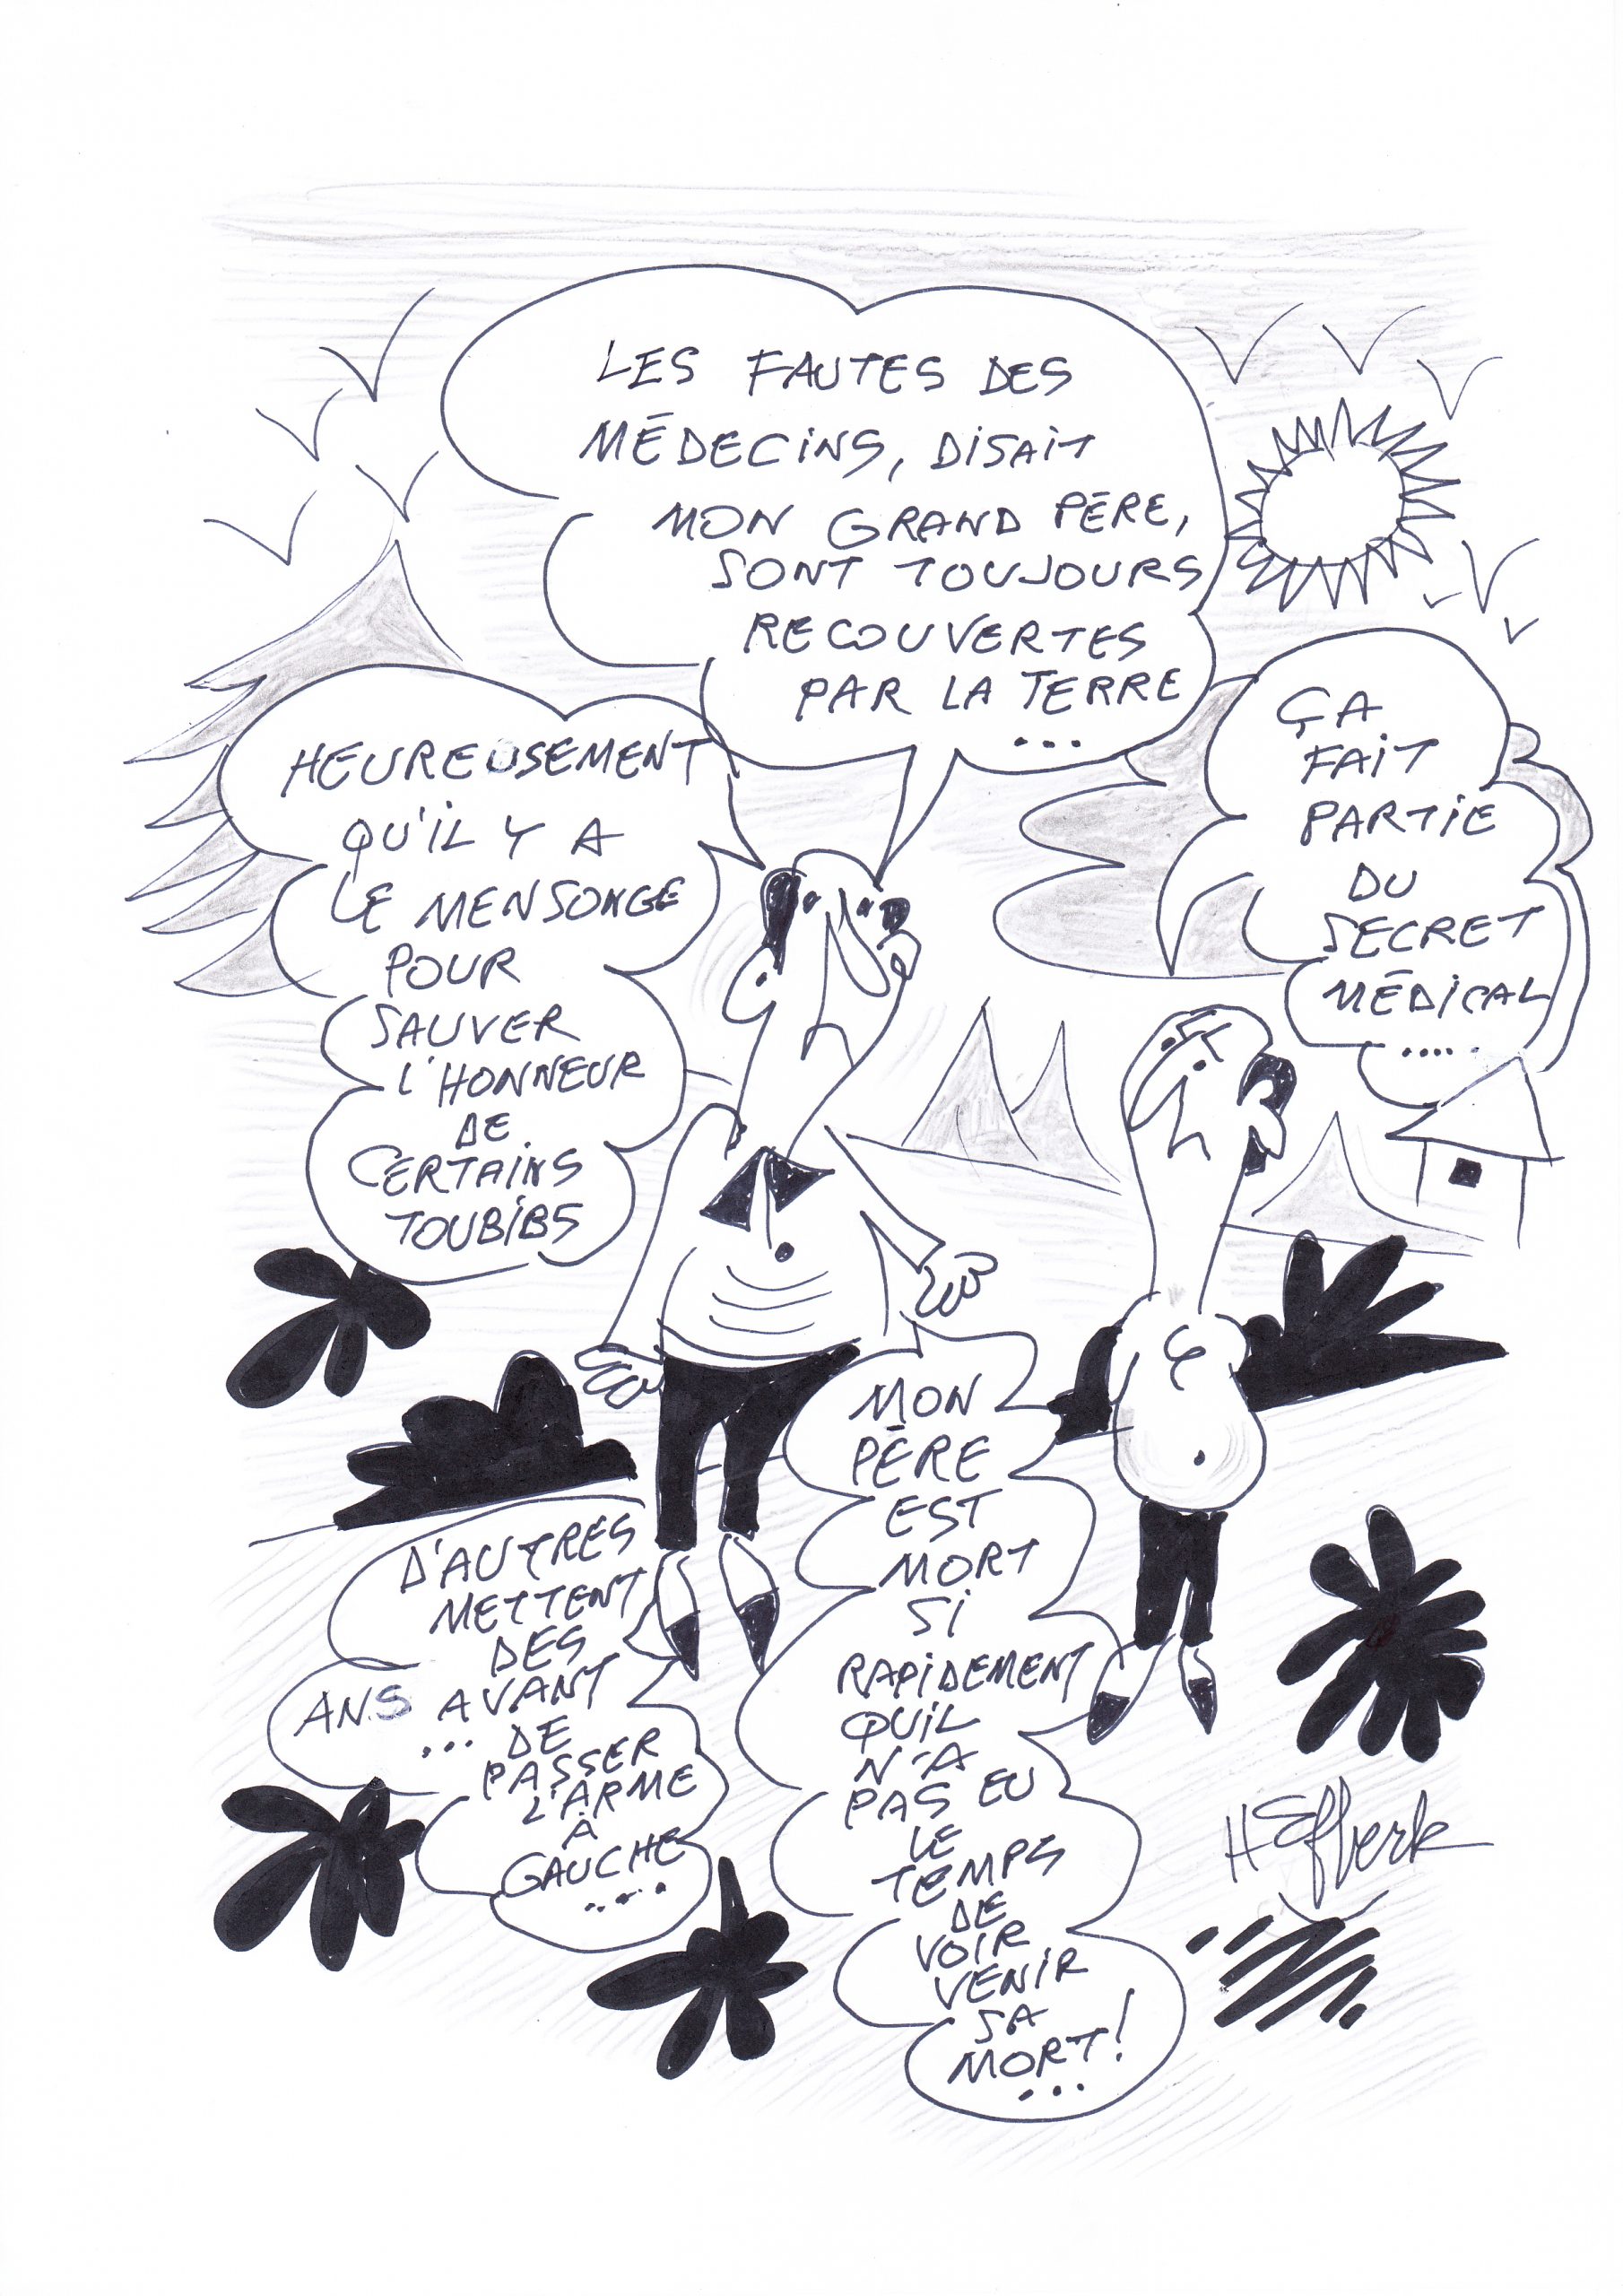 LES FAUTES DES
MÉDECINS, DISAIT
MON GRAND PÉRE,
SONT TOUJOURS
RECOUVERTES
PAR LA TERRE
...
ÇA
FAIT
PARTIE
DU
SECRET
MÉDICAL
.....
HEUREUSEMENT
QU'IL Y A
LE MENSONGE
POUR
SAUVER
L'HONNEUR
DE
CERTAINS
TOUBIBS
MON
PÉRE
EST
MORT
SI
RAPIDEMENT
QUIL
N'A
PAS EU
LE
TEMPS
DE
VOIR
VENIR
SA
MORT!
...
D'AUTRES
METTENT
DES
ANS AVANT
... DE
PASSER
L'ARME
À
GAUCHE
....